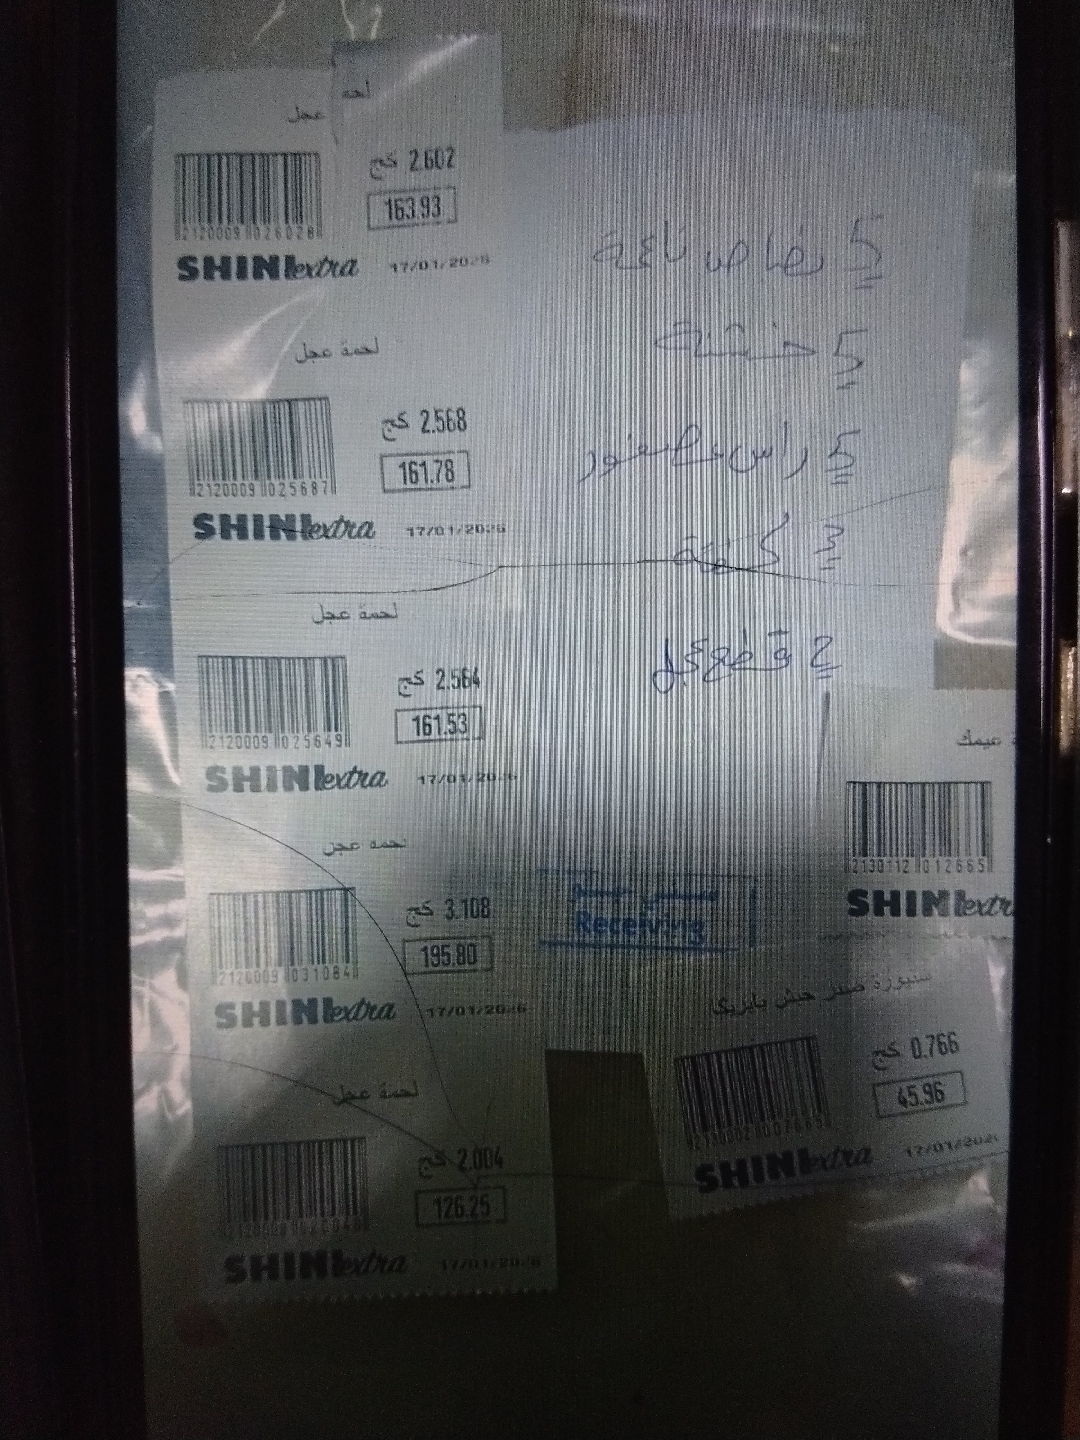 لحمة
عجل
كج 2.602
163.93
2120009 026028
SHINIextra 17/01/2026
لحمة عجل
كج 2.568
161.78
2120009 025687
SHINIextra 17/01/2026
لحمة عجل
كج 2.564
161.53
2120009 025649
SHINIextra 17/01/2026
لحمة عجل
كج 3.108
195.80
2120009 031084
SHINIextra 17/01/2026
لحمة عجل
كج 2.004
126.25
SHINIextra 17/01/2026
5 ناعمة
5 خشنة
5 راس عصفور
3 كفتة
2 قطع عجل
Receiving
2130112 012665
SHINIextra
حبش بابريكا
كج 0.766
45.96
SHINIextra 17/01/2026